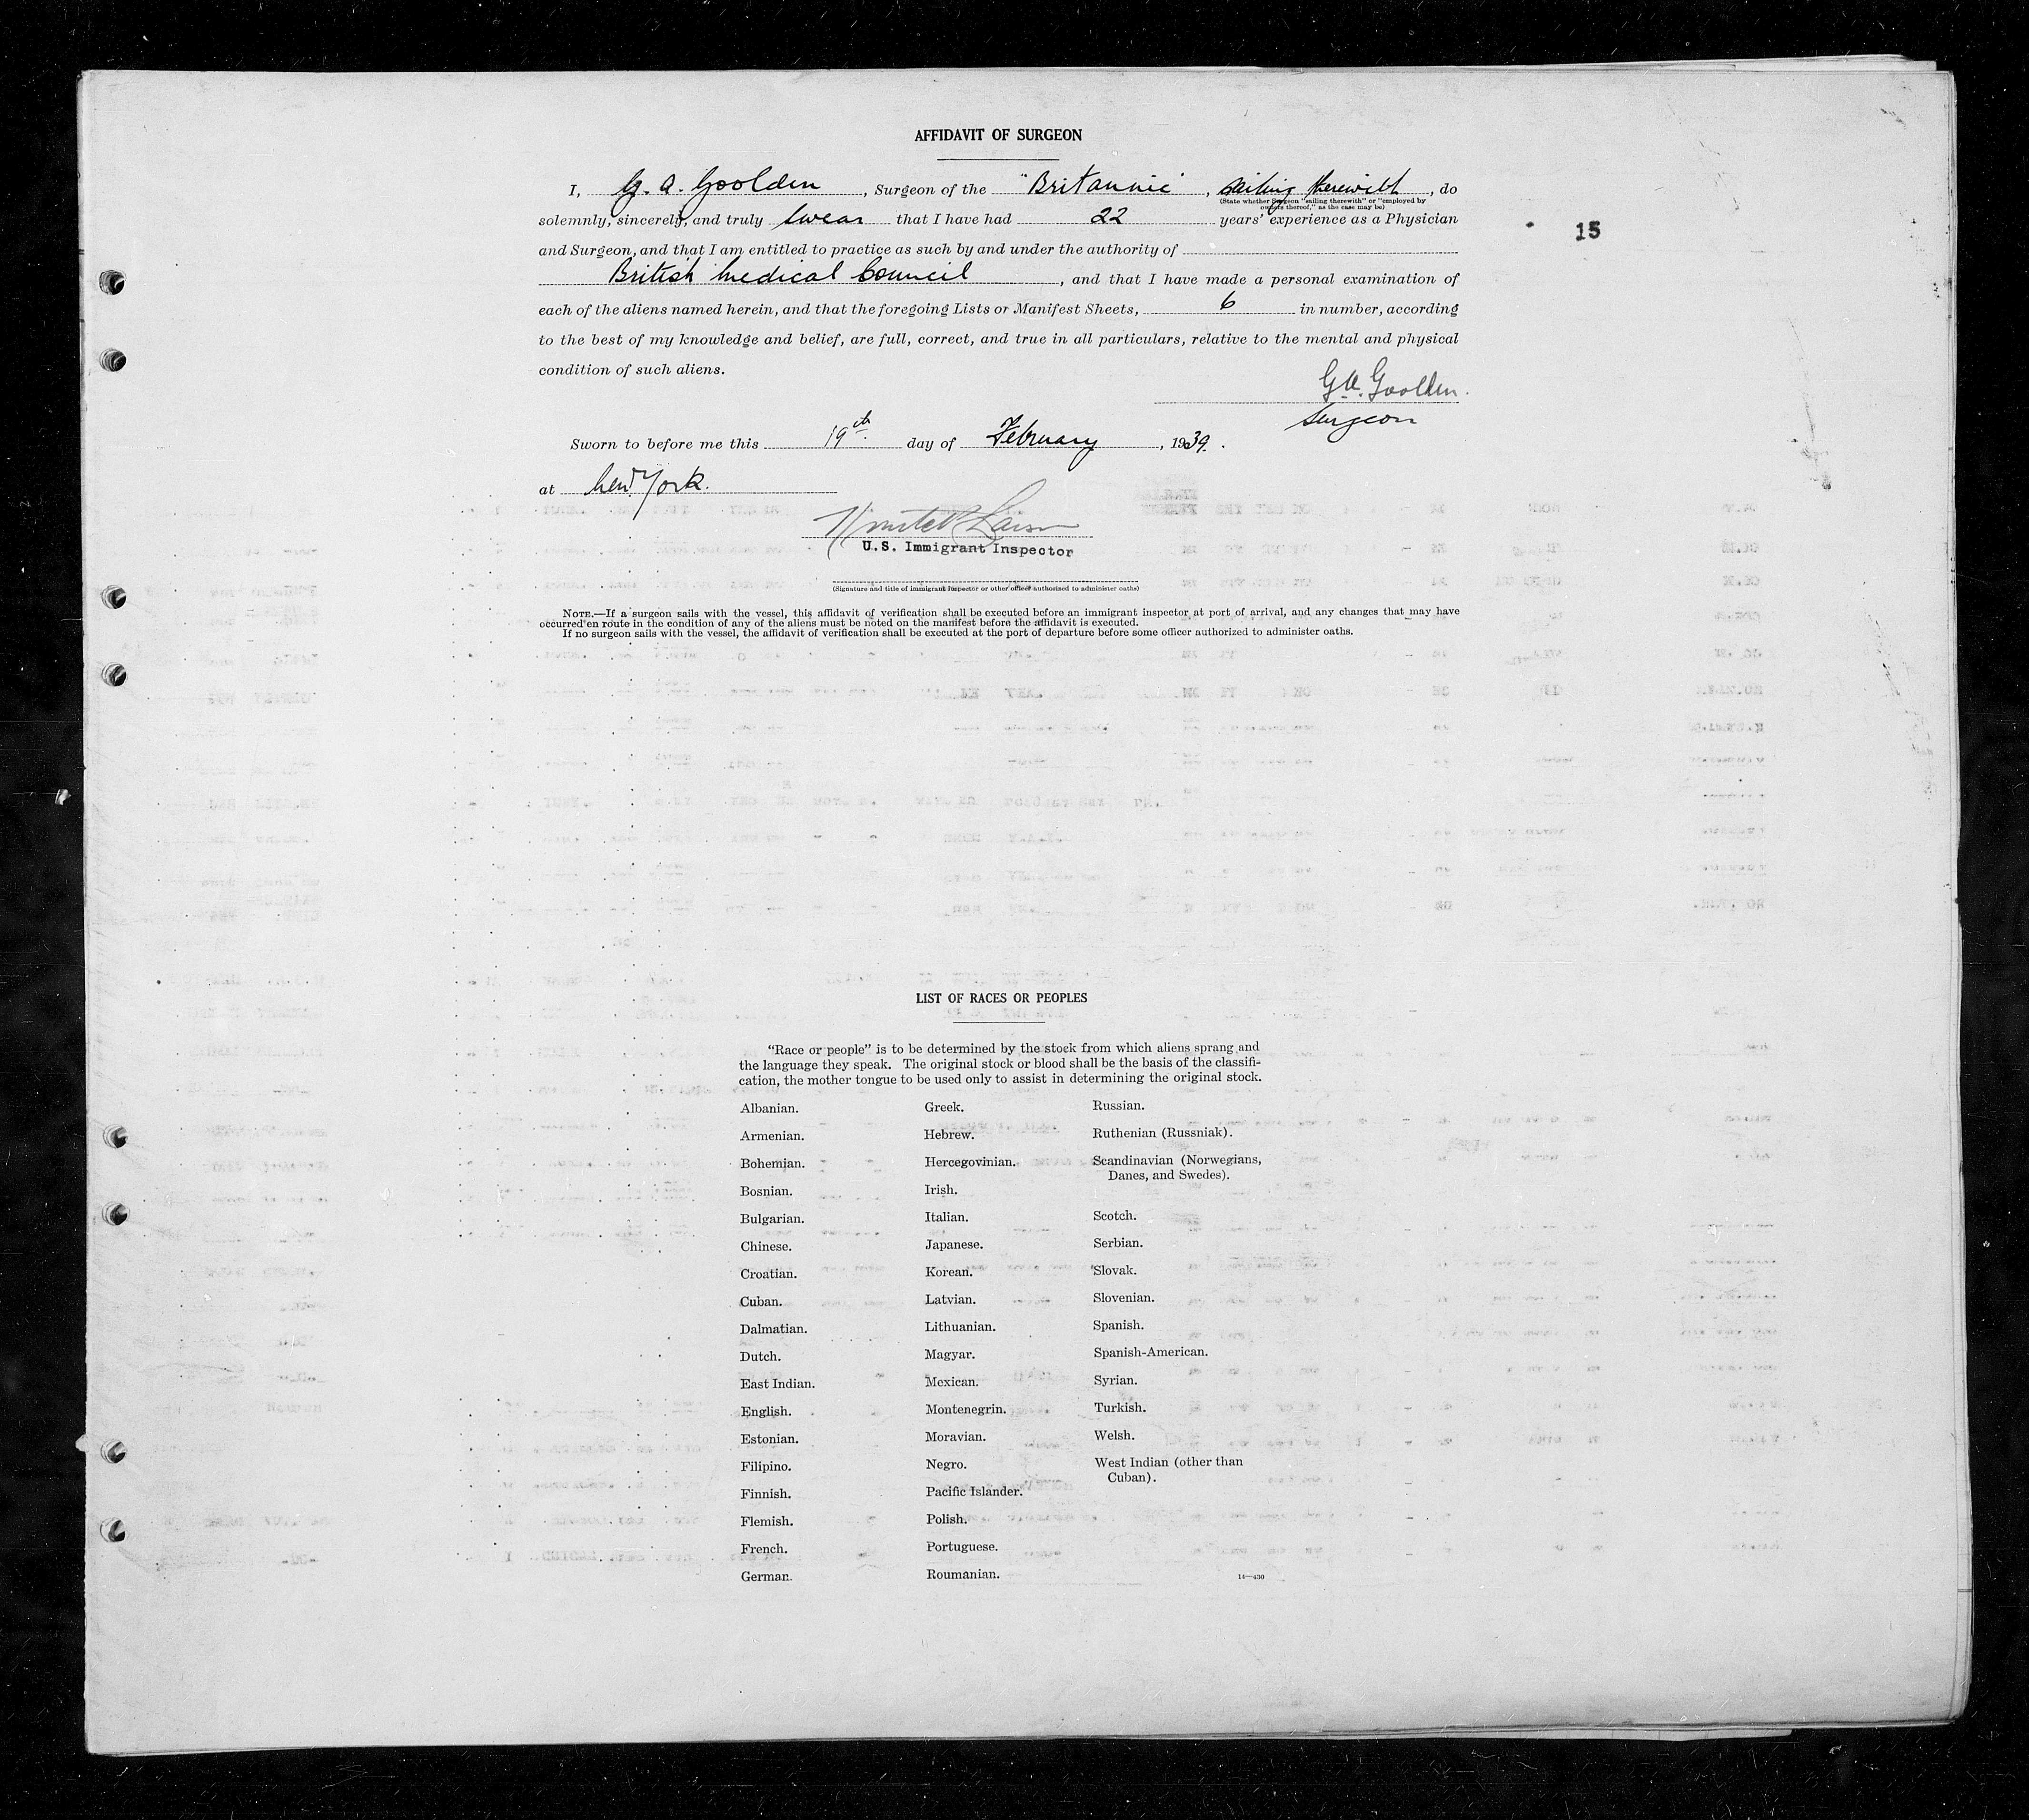 AFFIDAVIT OF SURGEON
I, G. A. Goolden, Surgeon of the "Britannic", sailing therewith, do
(State whether Surgeon "sailing therewith" or "employed by
owners thereof," as the case may be)
solemnly, sincerely, and truly swear that I have had 22 years' experience as a Physician
15
and Surgeon, and that I am entitled to practice as such by and under the authority of
British Medical Council, and that I have made a personal examination of
each of the aliens named herein, and that the foregoing Lists or Manifest Sheets, 6 in number, according
to the best of my knowledge and belief, are full, correct, and true in all particulars, relative to the mental and physical
condition of such aliens.
G.A. Goolden.
Surgeon
Sworn to before me this 19th day of February, 1939.
at New York.
U.S. Immigrant Inspector
(Signature and title of immigrant inspector or other officer authorized to administer oaths)
NOTE.—If a surgeon sails with the vessel, this affidavit of verification shall be executed before an immigrant inspector at port of arrival, and any changes that may have
occurred en route in the condition of any of the aliens must be noted on the manifest before the affidavit is executed.
If no surgeon sails with the vessel, the affidavit of verification shall be executed at the port of departure before some officer authorized to administer oaths.
LIST OF RACES OR PEOPLES
"Race or people" is to be determined by the stock from which aliens sprang and
the language they speak. The original stock or blood shall be the basis of the classifi-
cation, the mother tongue to be used only to assist in determining the original stock.
Albanian.
Armenian.
Bohemian.
Bosnian.
Bulgarian.
Chinese.
Croatian.
Cuban.
Dalmatian.
Dutch.
East Indian.
English.
Estonian.
Filipino.
Finnish.
Flemish.
French.
German.
Greek.
Hebrew.
Hercegovinian.
Irish.
Italian.
Japanese.
Korean.
Latvian.
Lithuanian.
Magyar.
Mexican.
Montenegrin.
Moravian.
Negro.
Pacific Islander.
Polish.
Portuguese.
Roumanian.
Russian.
Ruthenian (Russniak).
Scandinavian (Norwegians,
Danes, and Swedes).
Scotch.
Serbian.
Slovak.
Slovenian.
Spanish.
Spanish-American.
Syrian.
Turkish.
Welsh.
West Indian (other than
Cuban).
14—430